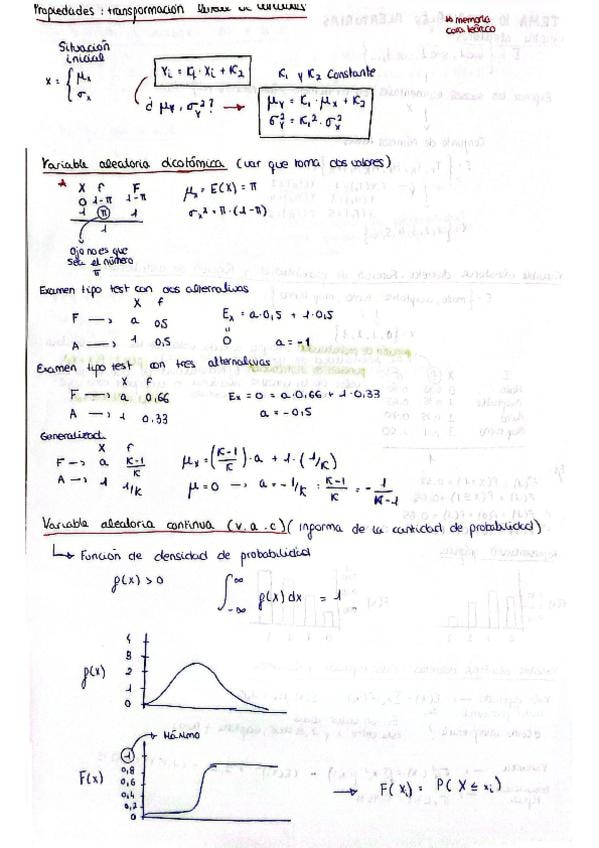 Propiedades: transformación lineal de variables
* memoria
cara teórico
Situación
inicial
X = { μx
σx
Yi = K1 · Xi + K2
K1 y K2 constante
¿ μY, σY²? →
μY = K1 · μx + K2
σY² = K1² · σx²
Variable aleatoria dicotómica (var que toma dos valores)
* X f F
0 1-π 1-π
1 π 1
1
μx = E(X) = π
σx² = π · (1-π)
Ojo no es que
sea el número
π
Examen tipo test con dos alternativas
X f
F → a 0,5
A → 1 0,5
Ex = a·0,5 + 1·0,5
=
0 a = -1
Examen tipo test con tres alternativas
X f
F → a 0,66
A → 1 0,33
Ex = 0 = a·0,66 + 1·0,33
a = -0,5
Generalizad.
X f
F → a K-1/K
A → 1 1/K
μx = (K-1/K) · a + 1 · (1/K)
μ = 0 → a = -1/K : K-1/K = - 1/K-1
Variable aleatoria continua (v.a.c) (informa de la cantidad de probabilidad)
↳ Función de densidad de probabilidad
f(x) > 0
∫-∞ ∞ f(x) dx = 1
f(x)
4
3
2
1
0
→ Máximo
F(x)
1
0,8
0,6
0,4
0,2
0
→ F(Xi) = P(X ≤ xi)